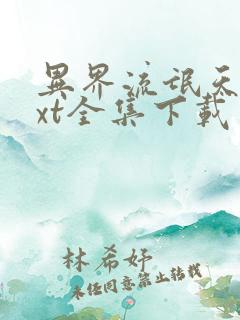 異界流氓天
xt全集下载
林希妤
未经同意禁止转载